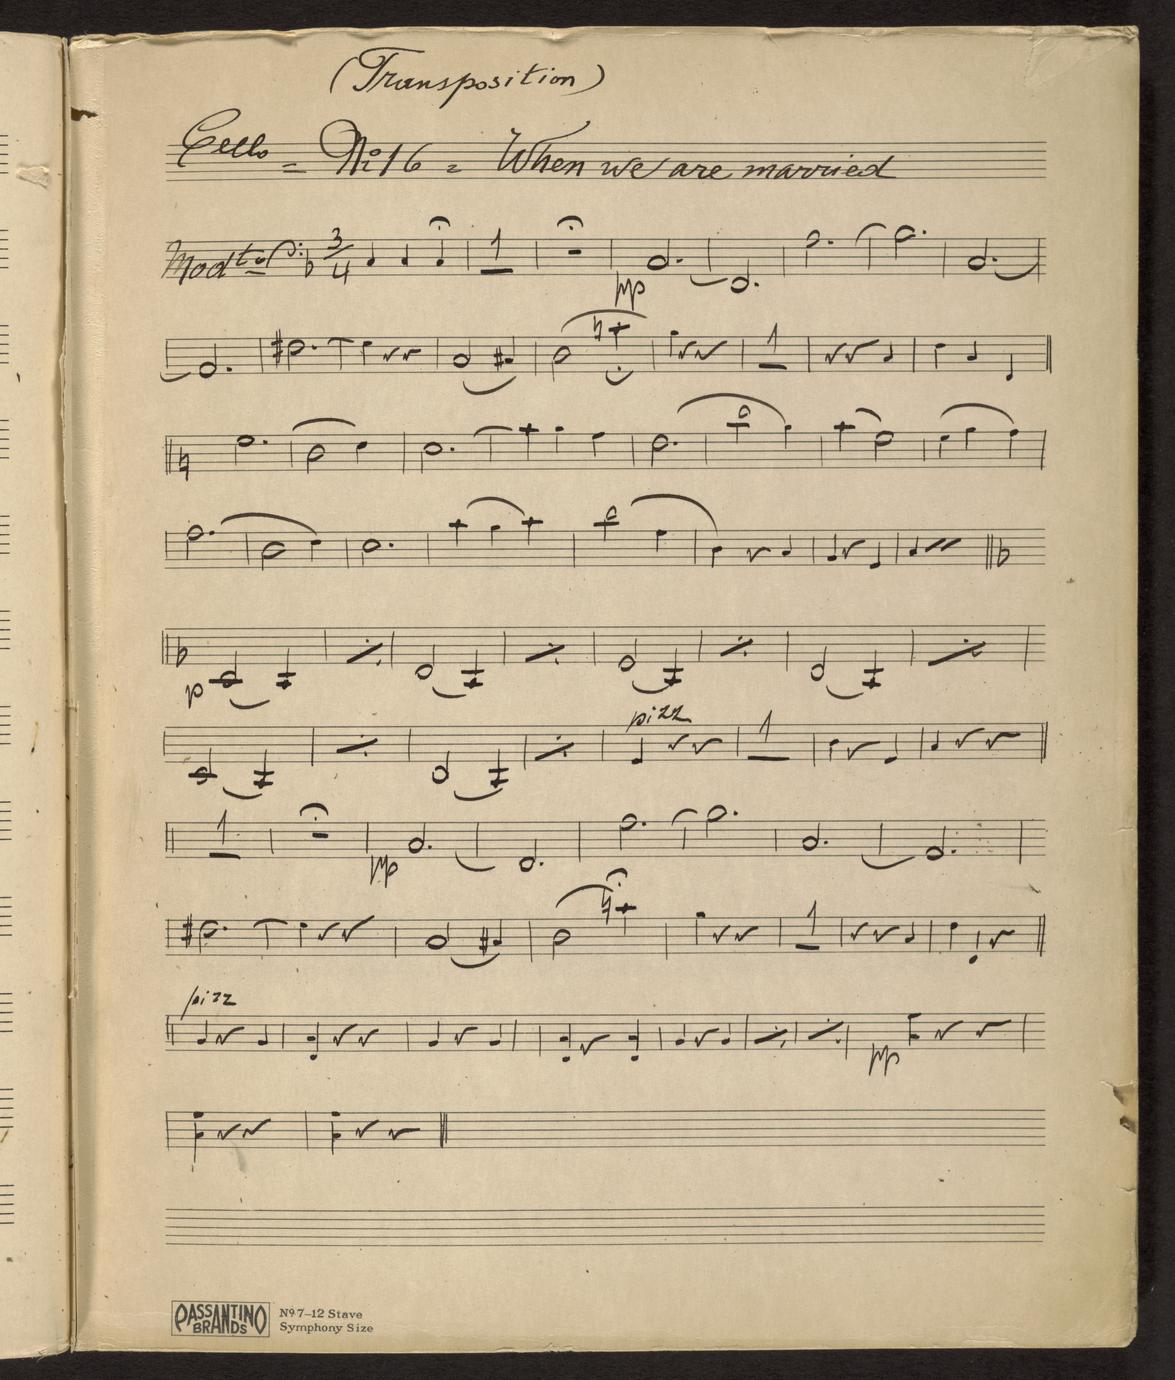 (Transposition)
Cello = No 16 = When we are married
Modto 3/4 1
pp
1
p
pizz
1
1
pp
1
pizz
pp
PASSANTINO BRANDS
No. 7–12 Stave
Symphony Size